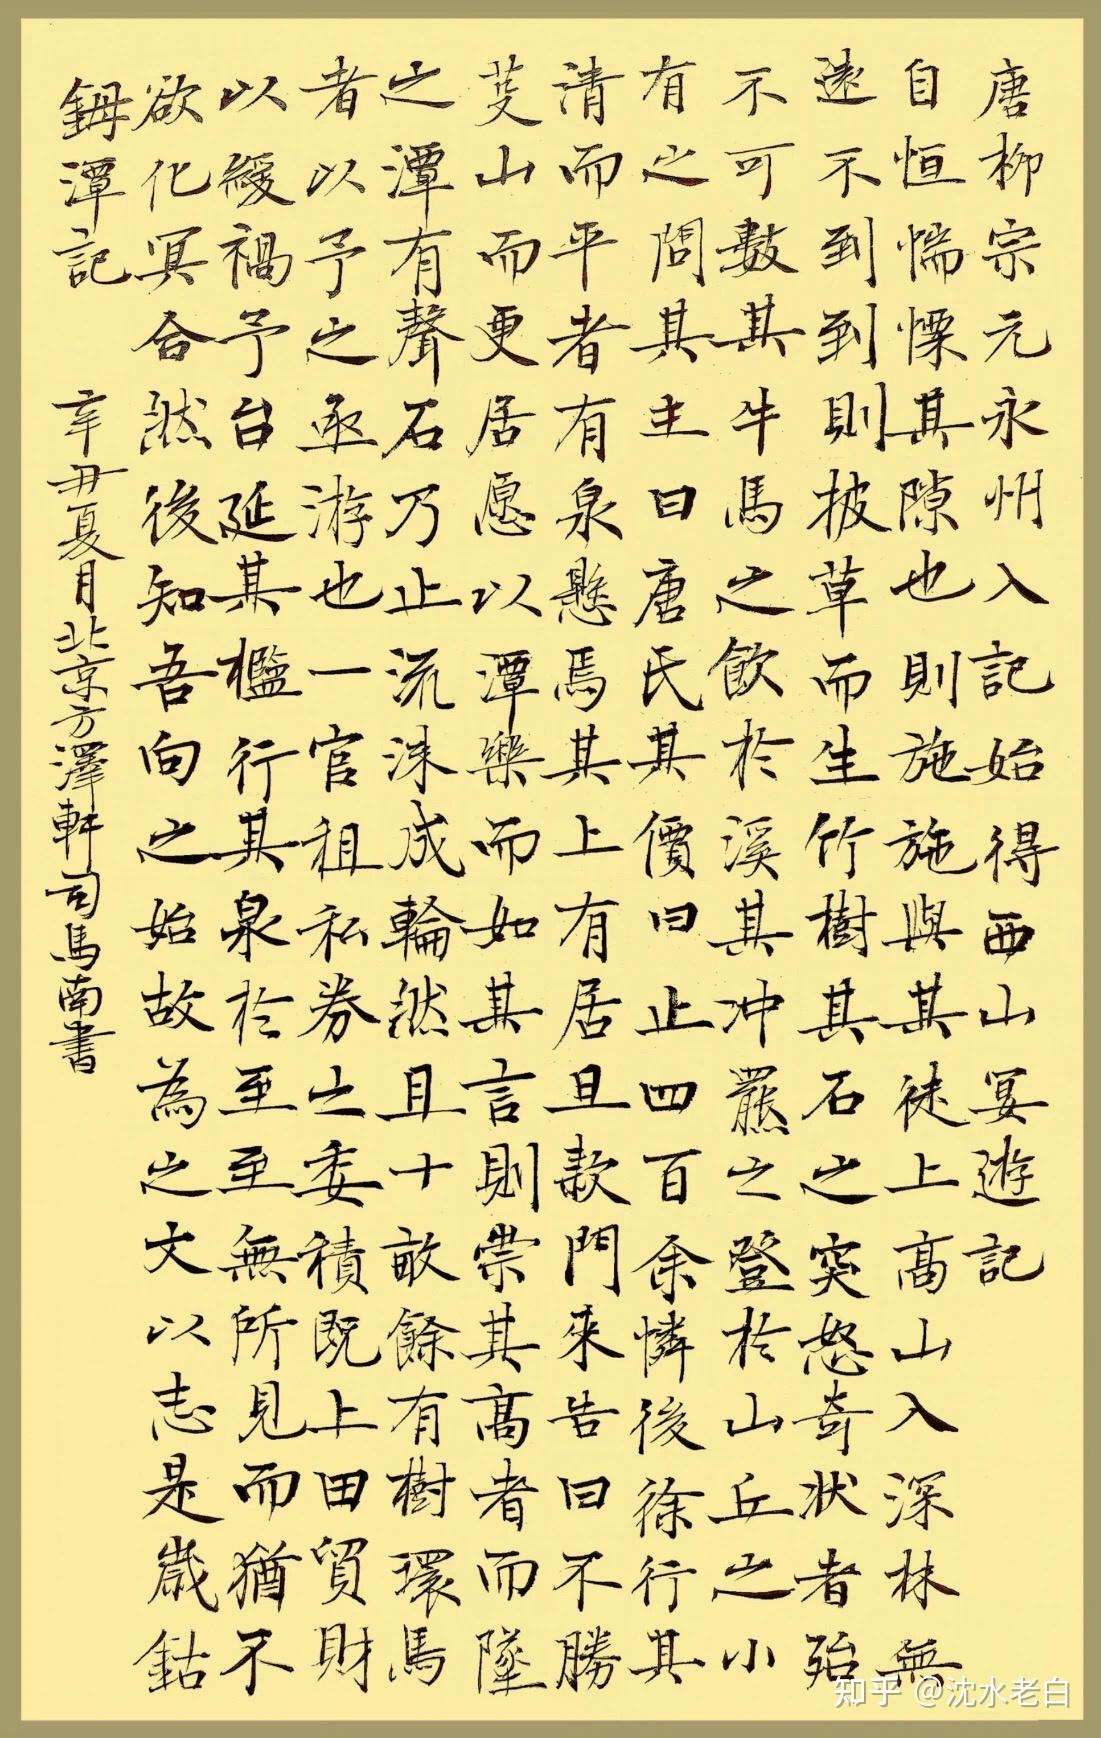 唐柳宗元永州八記始得西山宴遊記
自恒惴慄其隙也則施施與其徒上高山入深林無
遠不到到則披草而生竹樹其石之突怒奇狀者殆
不可數其牛馬之飲於溪其冲羆之登於山丘之小
有之問其主曰唐氏其價曰止四百余憐後徐行其
清而平者有泉懸焉其上有居且款門來告曰不勝
芟山而更居愿以潭樂而如其言則崇其高者而墜
之潭有聲石乃止流沫成輪然且十畝餘有樹環馬
者以予之亟游也一官租私券之委積既上田貿財
以緩禍予台延其檻行其泉於至至無所見而猶不
欲化冥合然後知吾向之始故為之文以志是歲鈷
鉧潭記 辛丑夏月北京方澤軒司馬南書
知乎 @沈水老白